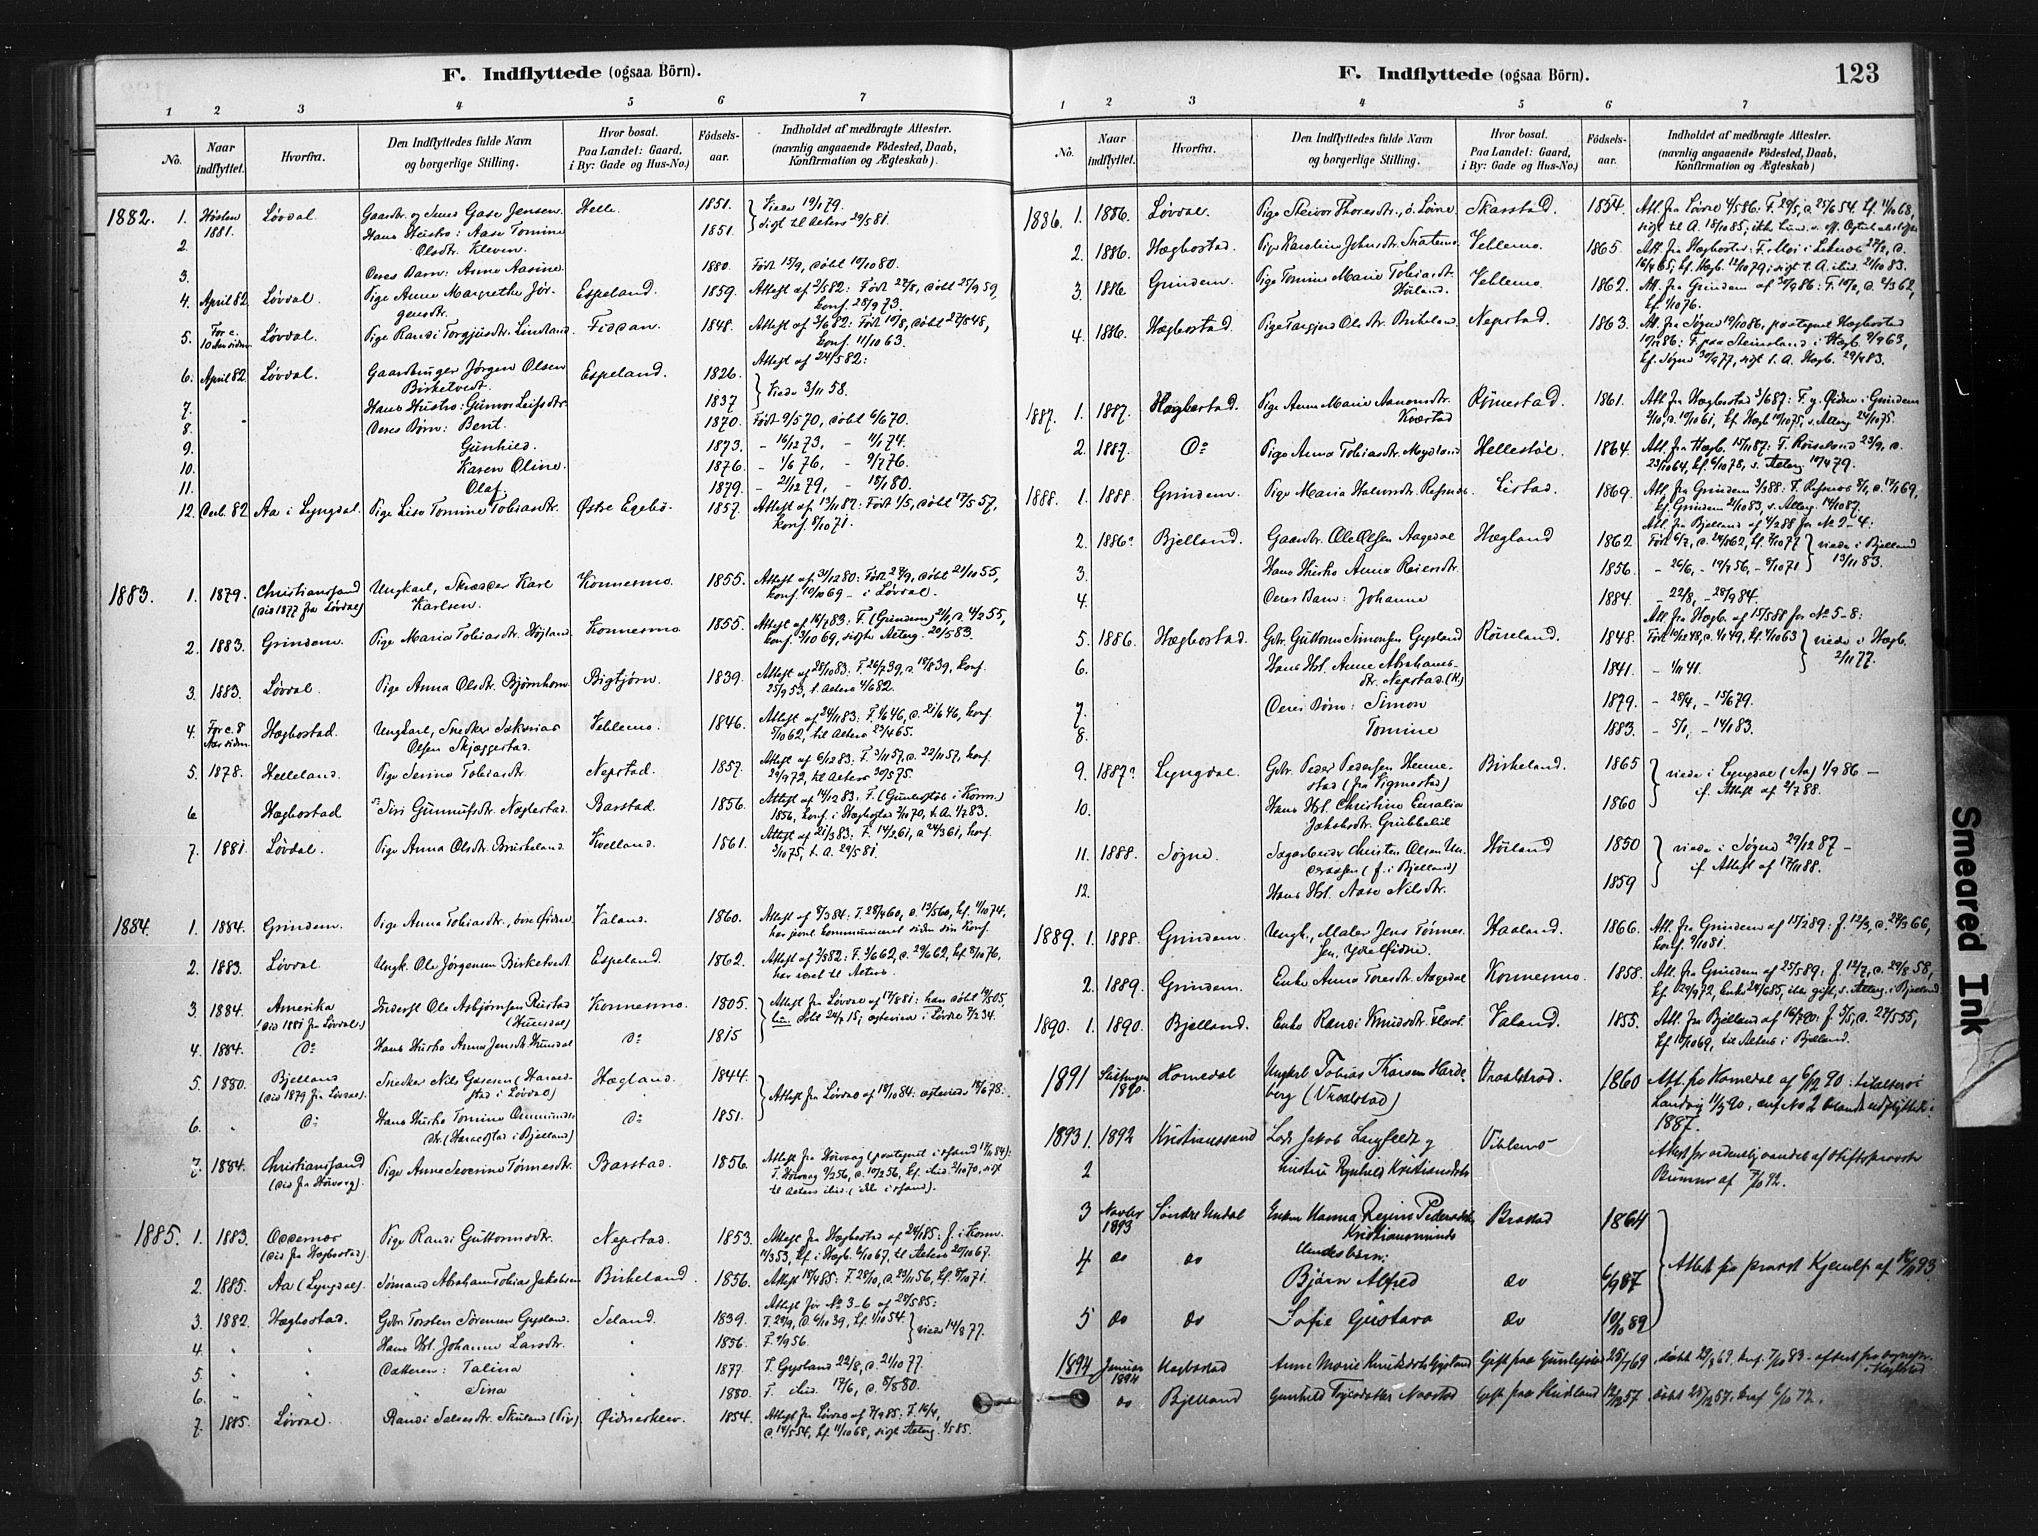 F. Indflyttede (ogsaa Börn).
1 2 3 4 5 6 7
No. Naar indflyttet. Hvorfra. Den Indflyttedes fulde Navn og borgerlige Stilling. Hvor bosat. Paa Landet: Gaard, i By: Gade og Hus-No.) Födsels-aar. Indholdet af medbragte Attester. (navnlig angaaende Födested, Daab, Konfirmation og Ægteskab).
1882. 1. Høsten 1881. Løvdal. Gaardbr. og Smed Gase Jensen Helle. 1851. Viede 19/1 79.
2. Hans Hustro: Aase Tomine Olsdtr. Kleven. 1851. sigt til Alters 29/5 81.
3. Deres Barn: Anne Aasine 1880. Født 15/9, døbt 10/10 80.
4. April 82. Løvdal. Pige Anne Margrethe Jørgensdtr. Espeland. 1859. Attest af 2/5 82: Født 22/8, døbt 25/9 59, konf. 28/9 73.
5. For c. 10 Aar siden. Løvdal. Pige Randi Torgjusdtr. Lindland. Fidjan. 1848. Attest af 3/6 82: Født 10/8, døbt 27/8 48, konf. 11/10 63.
6. April 82. Løvdal. Gaardbruger Jørgen Olsen Birketvedt. Espeland. 1826. Attest af 24/5 82:
7. Hans Hustro: Gunvor Leifsdtr. 1837 Viede 3/11 58.
8. Deres Børn: Berit. 1870. Født 9/5 70, døbt 6/6 70.
9. Gunhild. 1873. – 16/12 73, – 4/1 74.
10. Karen Oline. 1876. – 1/6 76, – 9/7 76.
11. Olaf 1879. – 21/12 79, – 18/1 80.
12. Decb. 82 Aa i Lyngdal. Pige Lise Tomine Tobiasdtr. Østre Egebø. 1857. Attest af 13/11 82: Født 1/5, døbt 17/5 57, konf. 8/10 71.
1883. 1. 1879. Christianssand (sid 1877 fra Løvdal) Ungkarl, Skrædder Karl Karlsen. Konnesmo. 1855. Attest af 31/12 80: Født 27/9, døbt 21/10 55, konf. 10/10 69 – i Løvdal.
2. 1883. Grindem. Pige Maria Tobiasdtr. Højland Konnesmo 1855. Attest af 14/7 83: F. (Grindem) 21/1, d. 4/2 55, konf. 3/10 69, sigte Alterg. 20/5 83.
3. 1883. Løvdal. Pige Anna Olsdtr. Bjørnhom Bigtjørn. 1839. Attest af 28/10 83: F. 26/7 39, d. 18/8 39, konf. 25/9 53, t. Alters 4/6 82.
4. For c. 8 Aar siden. Hægbostad. Ungkarl, Snedker Sakarias Olsen Skjeggestad. Veblemo. 1846. Attest af 24/11 83: F. 1/6 46, d. 21/6 46, konf. 5/10 62, til Alters 23/4 65.
5. 1878. Helleland. Pige Serine Tobiasdtr. Nepstad. 1857. Attest af 6/12 83: F. 3/11 57, d. 22/11 57, konf. 29/9 72, til Alters 30/5 75.
6. Hægbostad Siri Gunnufsdtr. Neglestad. Barstad. 1856. Attest af 14/12 83: F. (Gunlestøl i Konn.) 1856, konf. i Hægbostad 2/10 70, t. A. 1/7 83.
7. 1881. Løvdal. Pige Anna Olsdtr. Birkeland. Kvelland. 1861. Attest af 21/3 83: F. 14/2 61, d. 24/3 61, konf. 3/10 75, t. A. 29/5 81.
1884. 1. 1884. Grindem. Pige Anna Tobiasdtr., øvre Øidne Valand. 1860. Attest af 8/3 84: F. 28/4 60, d. 13/5 60, kf. 11/10 74, har jevnl. kommuniceret siden sin Konf.
2. 1883. Løvdal Ungk. Ole Jørgensen Birketvedt Espeland. 1862. Attest af 2/5 82: F. 3/6 62, d. 29/6 62, kf. 8/10 76, har været til Alters.
3. 1884. Amerika (sid 1881 fra Løvdal.) Inderst Ole Asbjørnsen Rustad (Hunsdal) Konnesmo. 1805. Attest fra Løvdal af 17/8 81: han døbt 19/5 05.
4. 1884. Do Hans Hustro Anna Jensdtr. Hunsdal Do 1815 hun døbt 24/7 15; ægteviet i Løvdal 7/2 34.
5. 1880. Bjelland (sid 1879 fra Løvdal) Snedker Nils Gasesen (Haraldstad i Løvdal) Hægland. 1844. Attest fra Løvdal af 18/10 84: ægteviet 18/6 78.
6. " Do Hans Hustro Tomine Ommundsdtr. (Haraldstad i Bjelland) Do 1851.
7. 1884. Christianssand (sid fra Høivaag). Pige Anne Severine Tønnesdtr. Barstad. 1856. Attest fra Høivaag (paategnet i Csand 17/11 84): F. Høivaag 9/2 56, d. 10/2 56, kf. ibid. 2/10 70, sigt til Alters ibid. (ikke i Csand).
1885. 1. 1883. Oddernes (sid fra Hægbostad). Pige Randi Guttormsdtr. Nepstad. 1853. Attest fra Hægbostad af 24/1 85: f. i Konn. 14/3 53, kf. i Hægb. 6/10 67, til Alters 20/10 67.
2. 1885. Aa (Lyngdal) Sømand Abraham Tobias Jakobsen Birkeland. 1856. Attest 18/4 85: F. 28/10, d. 23/11 56, kf. 8/10 71.
Attest for No 3–6 af 28/5 85:
3. 1882. Hægbostad. Gdbr. Torsten Sørensen Gysland. Seland. 1839. F. 29/9, d. 6/10 39, kf. 1/10 54. viede 14/8 77.
4. " " Hans Hst. Johanne Larsdtr. 1856. F. 9/9 56.
5. " " Datteren: Talina " 1877. F. Gysland 22/8, d. 21/10 77.
6. " " Sina " 1880. F. ibid. 17/6, d. 8/8 80.
7. 1885. Løvdal. Randi Salvesdtr. Skuland (Pige) Øidnekleiv. 1854. Attest fra Løvdal af 7/9 85: F. 16/4, d. 14/5 54, kf. 11/10 68, sigt Alterg. 4/5 85.
F. Indflyttede (ogsaa Börn). 123
1 2 3 4 5 6 7
No. Naar indflyttet. Hvorfra. Den Indflyttedes fulde Navn og borgerlige Stilling. Hvor bosat. Paa Landet: Gaard, i By: Gade og Hus-No.) Födsels-aar. Indholdet af medbragte Attester. (navnlig angaaende Födested, Daab, Konfirmation og Ægteskab)
1886. 1. 1886. Løvdal. Pige Steivor Thoresdtr., ö. Løvdal Skarstad. 1854. Att. fra Løvdal 4/5 86: F. 29/5, d. 25/6 54. kf. 11/10 68, sigt til A. 18/10 85,
2. 1886. Hægbostad. Pige Karoline Johnsdtr. Snartemo Veblemo. 1865. Att. fra Hægbostad: F. Moi i Leknes 27/2, d. 16/4 65, kf. Hægb. 12/10 79, sigt t. A. ibid. 21/10 83.
3. 1886 Grindem. Pige Tomine Marie Tobiasdtr. Høiland. Veblemo. 1862. Att. fra Grindem af 30/9 86: F. 10/2, d. 4/3 62, kf. 1/10 76.
4. 1886. Hægbostad. Pige Targjerd Olsdtr. Birkeland Nepstad. 1863. Att. fra Søgne 19/10 86, paategnet Hægbostad 17/11 86: F. paa Steinsland i Hægb. 9/9 63, kf. Søgne 30/9 77, sigt t. A. Hægb. 29/4 83.
1887. 1. 1887. Hægbostad. Pige Anne Marie Aanonsdtr. Kværstad Rømestad. 1861. Att. fra Hægbostad 3/6 87: F. y. Øidne i Grindem 2/10, d. 19/10 61, kf. Hægb. 10/10 75, s. Alterg. 24/10 75.
2. 1887. Do Pige Anna Tobiasdtr. Mydland Hellestøl. 1864. Att. fra Hægb. 15/11 87. F. Røiseland 23/9, d. 23/10 64, kf. 6/10 78, s. Alterg. 10/4 79.
1888. 1. 1888. Grindem. Pige Maria Halvordtr. Refsnes. Listad. 1869. Att. fra Grindem 3/3 88: F. Refsnes 8/1, d. 17/1 69, kf. Grindem 21/10 83, s. Alterg. 14/10 87.
Att. fra Bjelland af 4/2 88 for No 2–4:
2. 1886. Bjelland. Gaardbr. Ole Olsen Aagedal Hægland 1862 Født 6/7, d. 24/8 62, kf. 7/10 77 viede i Bjelland 13/11 83.
3. Hans Hustro Anna Reiersdtr. 1856. – 26/6, – 19/7 56, – 8/10 71
4. Deres Barn: Johanne 1884. – 22/8, – 28/9 84.
Att. fra Hægb. af 15/5 88 for No 5–8:
5. 1886. Hægbostad. Gdr. Guttorm Simonsen Gysland Røiseland. 1848. Født 19/12 48, d. 4/1 49, kf. 4/10 63 viede i Hægb. 2/11 77.
6. Hans Hst. Anne Abrahamsdtr. Nepstad (K) 1841. – 1/11 41.
7. Deres Børn: Simon 1879. – 28/4, – 15/6 79.
8. Tomine 1883. – 5/1, – 14/1 83.
9. 1887 Lyngdal. Gdr. Peder Pedersen Hennestad (fra Vigmostad) Birkeland. 1865 viede i Lyngdal (Aa) 1/9 86 –
10. Hans Hst. Christine Euralia Jakobsdtr. Grubbelid 1860 if. Attest af 2/7 88.
11. 1888. Søgne. Sagarbeider Christen Olsen Undraasen (f. i Bjelland) Høiland 1850 viede i Søgne 29/12 87 –
12. Hans Hst. Aase Nilsdtr. 1859 if. Attest af 17/11 88.
1889. 1. 1888. Grindem. Ungk., Maler Jens Tønnessen, ydre Øidne. Haaland. 1866. Att. fra Grindem af 15/2 89: f. 12/3, d. 29/3 66, konf. 9/10 81.
2. 1889. Grindem. Enke Anna Toresdtr. Aagedal Konnesmo. 1858. Att. fra Grindem af 25/5 89: f. 12/7, d. 29/8 58, kf. 29/9 72, Enke 24/6 85, ikke gift, s. Alterg. i Bjelland
1890. 1. 1890. Bjelland. Enke Randi Knudsdtr. Valand. 1855. Att. fra Bjelland af 16/7 90: f. 5/5, d. 27/5 55, kf. 10/10 69, til Alters i Bjelland.
1891 1890. Homedal Ungkarl Tobias Karsen Hardeberg (Vraalstad) Vraalstad. 1860 Att. fra Homedal af 6/12 90: til alters i Landvig 11/5 90; anf. No 2 blandt udflyttede i 1887.
1893 1. 1892 Kristianssand Jakob Langfeldt og Veblemo Attest for ordentlig vandel af Stiftsprovst
2 hustru Ragnhild Kristiansdtr af 7/10 92.
3 Novbr 1893 Søndre Undal Enken Hanna Regine Pedersdtr Kristiansminde Brastad 1864
4 do do Hendes børn: Bjørn Alfred do 6/9 87 Attest fra provst af 18/11 93
5 do do Sofie Gustava do 10/10 89
1894 Januar 1894 Hægbostad Anne Marie Knudsdtr Gysland Gift paa Gunlestøl 25/7 69, døbt 29/8 69, konf. 7/10 83.
do Bjelland Gunhild Naastad Gift paa Skuland 12/12 57 døbt 25/12 57; konf. 6/10 72.
Smeared Ink